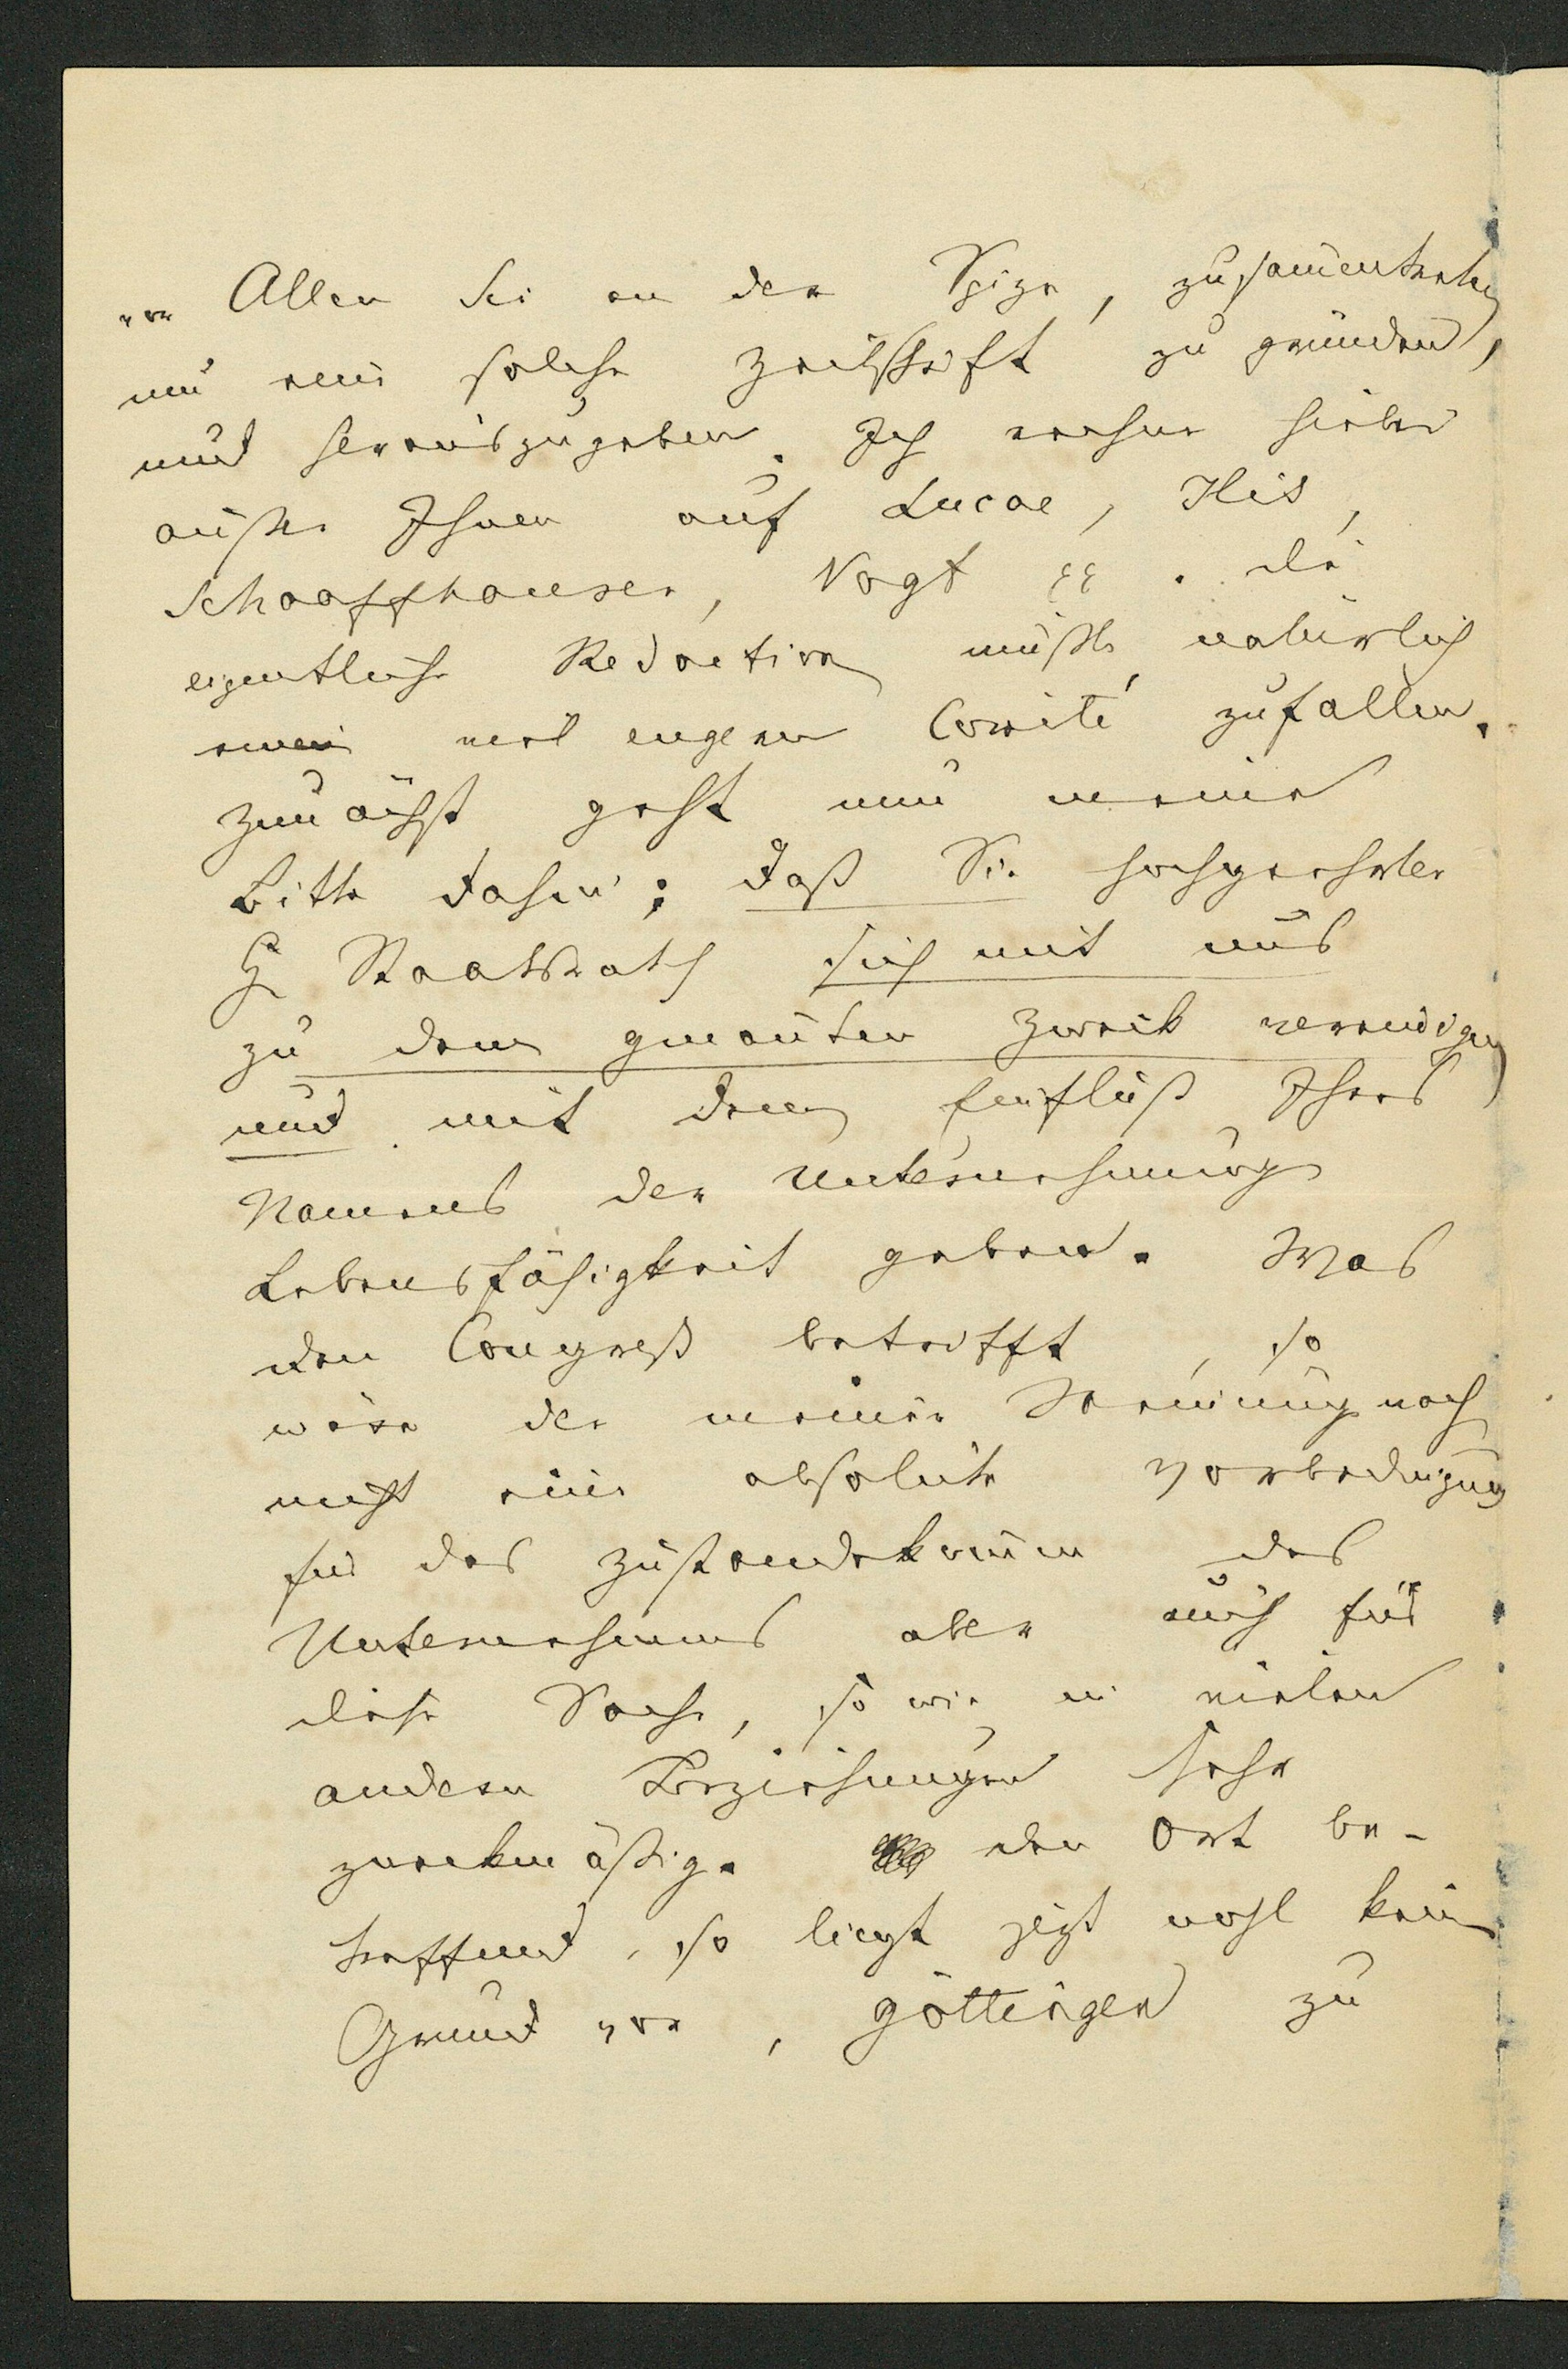 vor Allen Sie an der Spize, zusam̄entreten
um eine solche Zeitschrift zu gründen,
und herauszugeben. Ich rechne hiebei
außer Ihnen auf Lucae, His,
Schaaffhausen, Vogt etc. die
eigentliche Redaction müßte natürlich
einem engeren Comité zufallen.
Zunächst geht nun meine
Bitte dahin; daß Sie hochgeehrter
H Staatsrath sich mit uns
zu dem genan̄ten Zweck vereinigen
und mit dem Einfluß Ihres
Namens der Unternehmung
Lebensfähigkeit geben. Was
den Congreß betrifft, so
wäre der meiner Meinung nach
nicht eine absolute Vorbedingung
für das Zustandekom̄en des
Unternehmens aber auch für
diese Sache, so wie in vielen
andern Beziehungen sehr
zweckmäßig. den Ort be-
treffend, so liegt jezt wohl kein
Grund vor, Göttingen zu